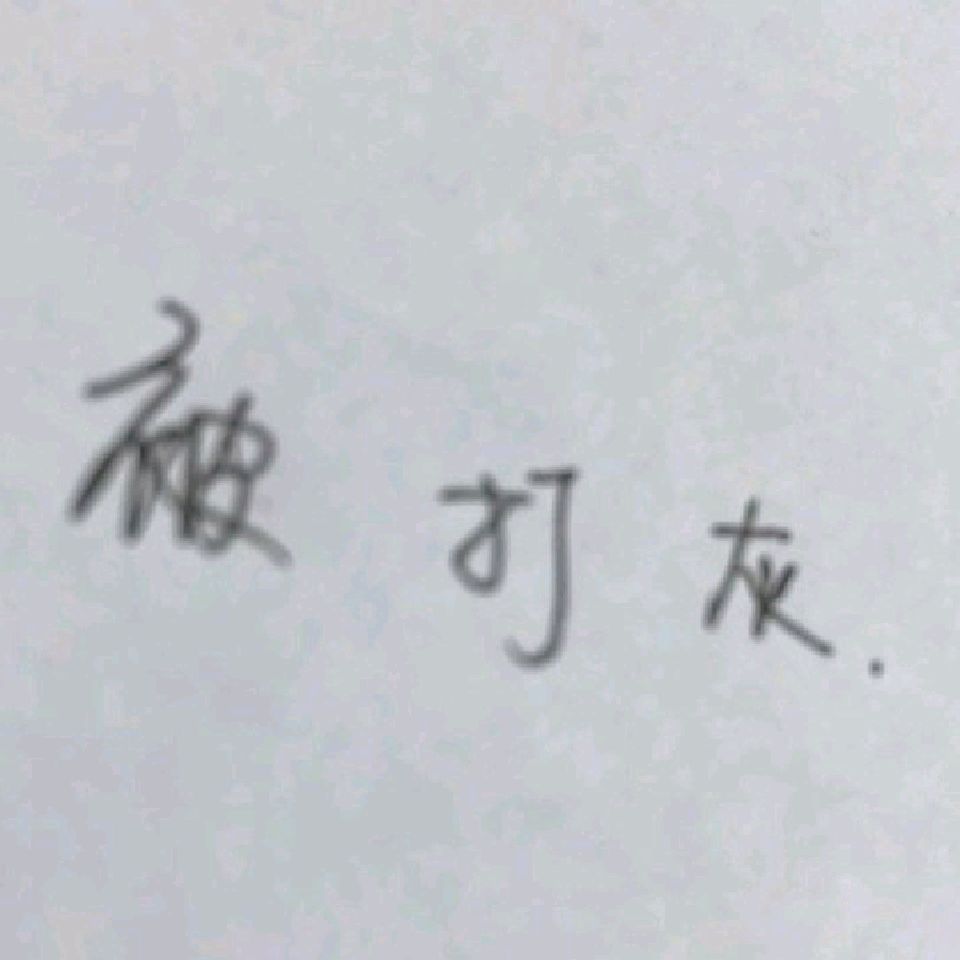 被打灰.